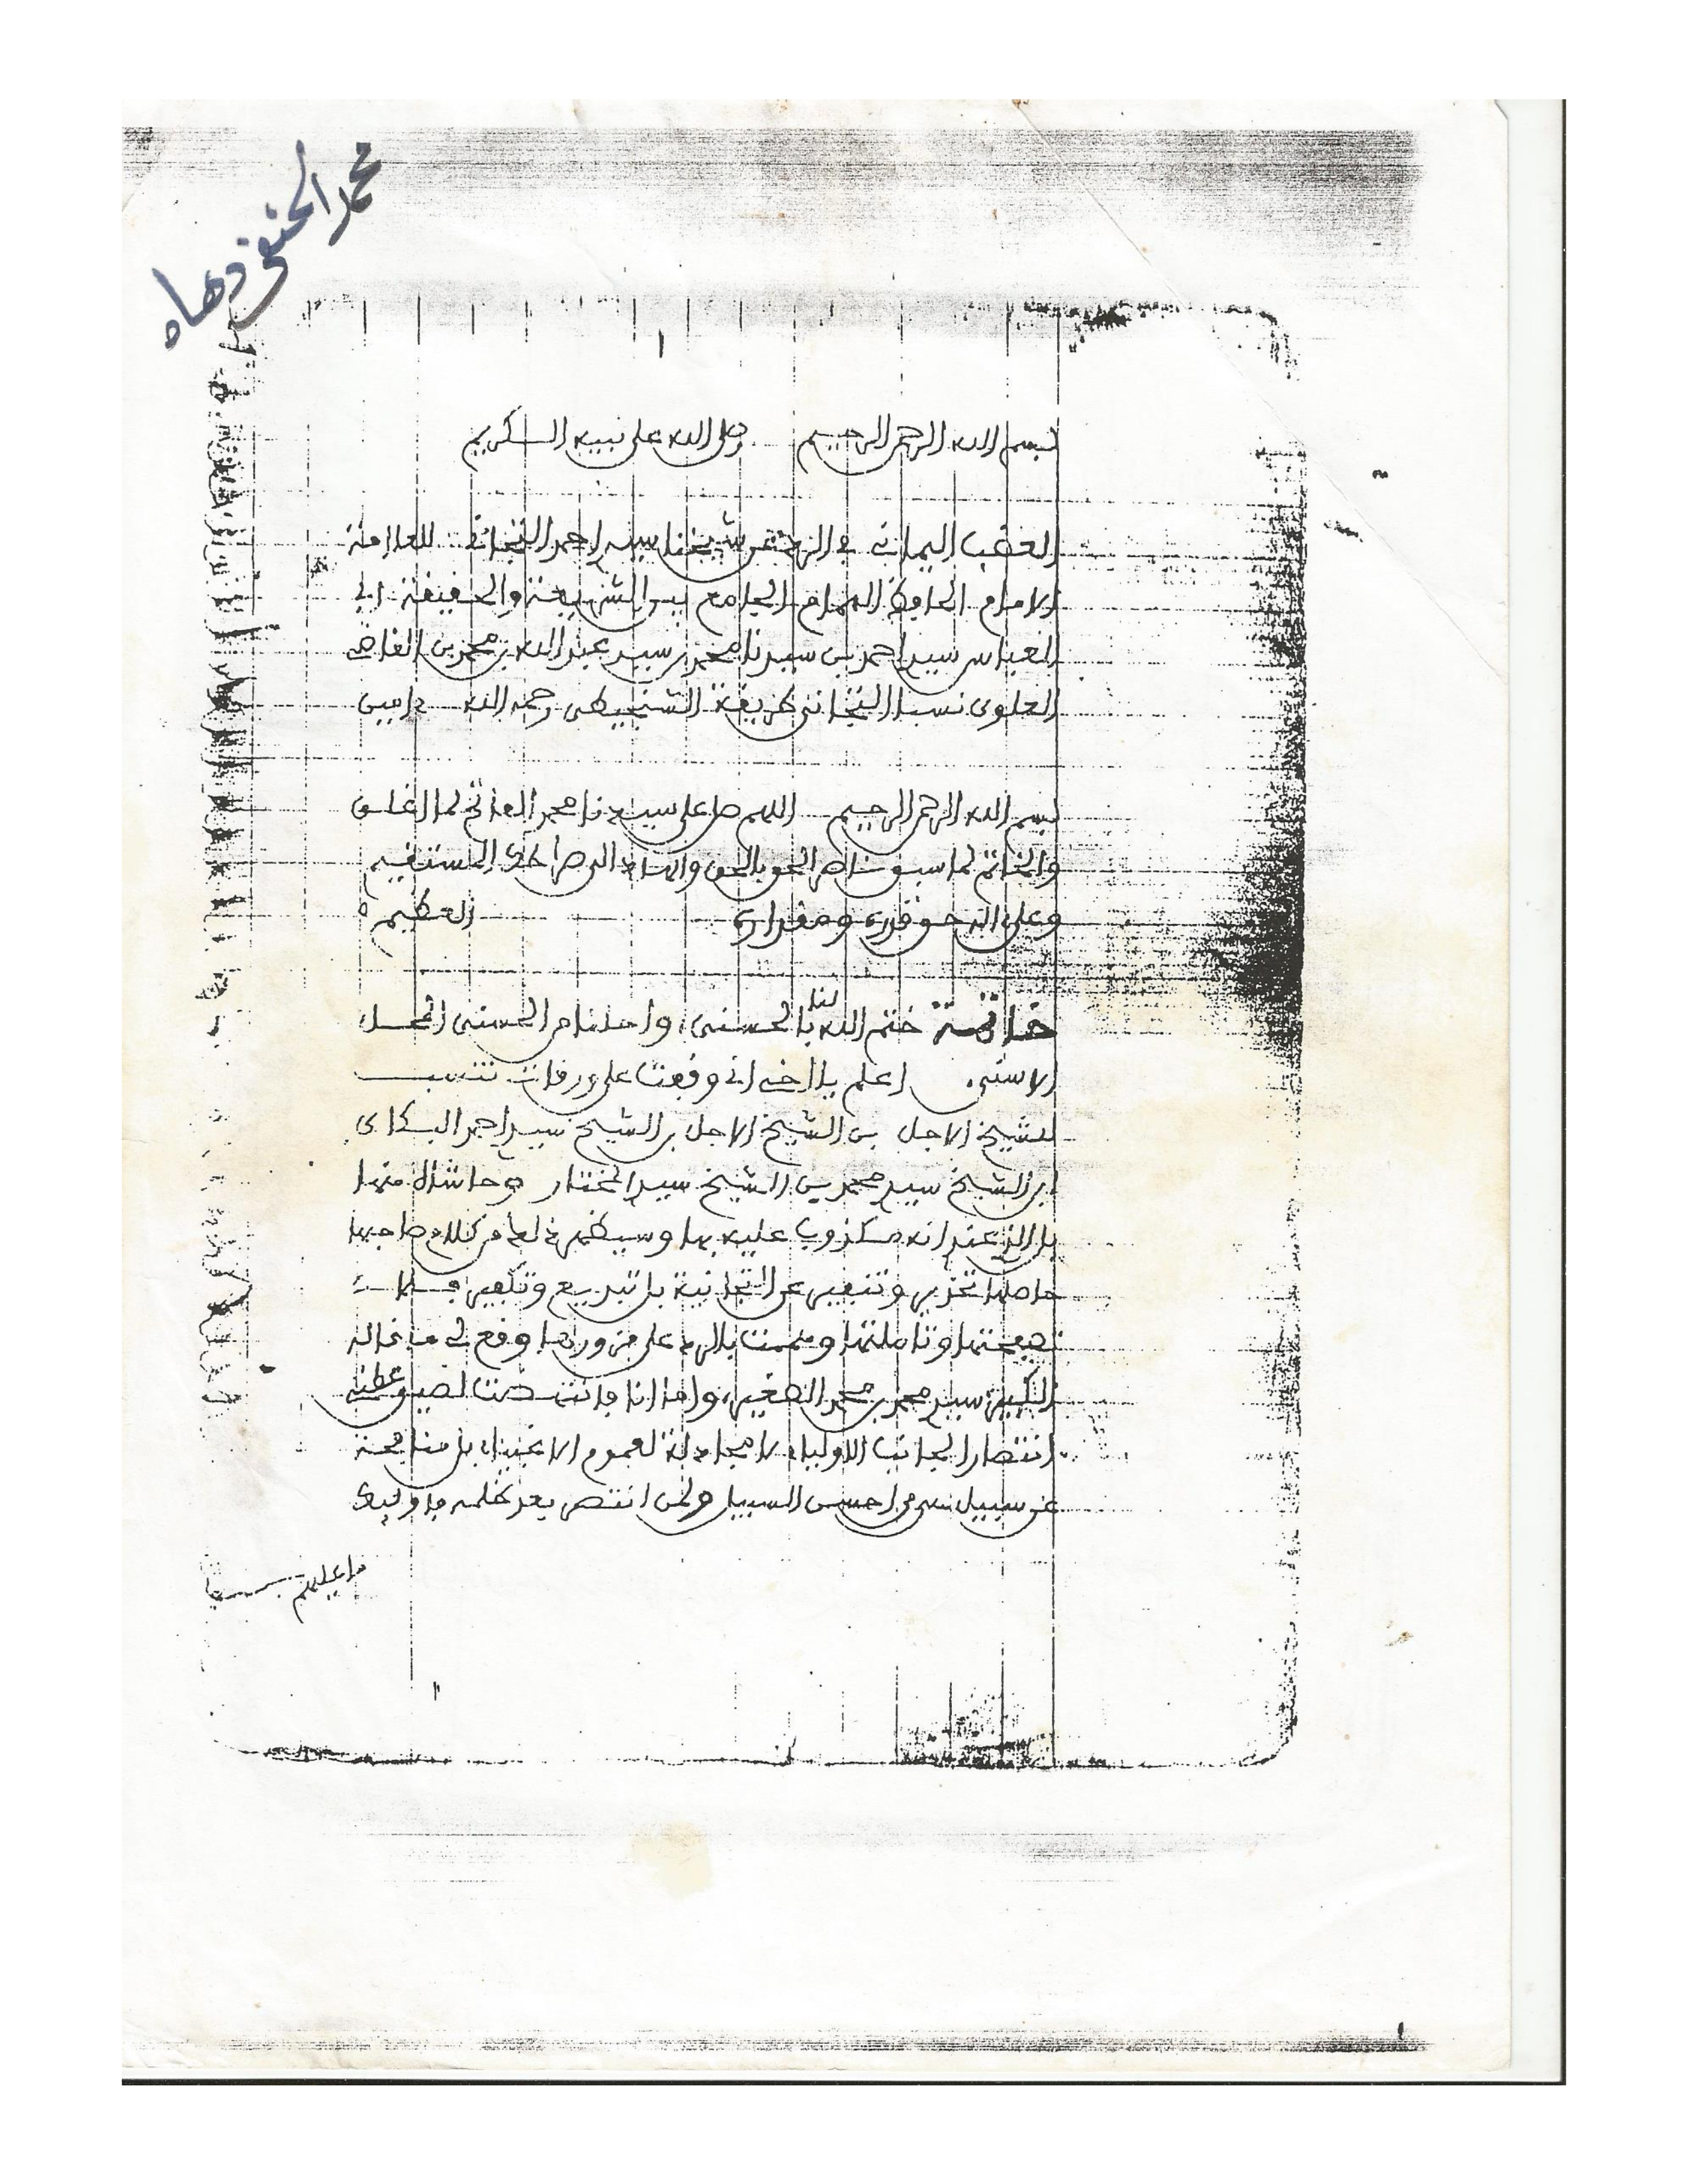 محمد الحنفي دهاه
بسم الله الرحمن الرحيم وصلى الله على نبيه الكريم
العضب اليماني في الرد عن شيخنا سيد احمد التجاني للعلامة
الامام الحافظ الهمام الجامع بين الشريعة والحقيقة ابي
العباس سيد احمد بن سيدنا محمد بن سيد عبد الله بن محمد بن القاضي
العلوى نسبا التجاني طريقة الشنجيطي رحمه الله ءامين
بسم الله الرحمن الرحيم اللهم صل على سيدنا محمد الفاتح لما اغلق
والخاتم لما سبق ناصر الحق بالحق والهادى الى صراطك المستقيم
وعلى اله حق قدره ومقداره العظيم
خاتمة ختم الله لنا بالحسنى، واحلنا من الحسنى المحل
الاسنى. اعلم يا اخي اني وقعت على ورقات تنسب
للشيخ الاجل بن الشيخ الاجل بن الشيخ سيد احمد البكاى
ابن الشيخ سيد محمد بن الشيخ سيد المختار وحاشاه منها
بل الذى عندى انه مكذوب عليه بها وسيظهر ذلك من كلام صاحبها
حاصلها تحذير وتنفير عن التجانية بل تبديع وتكفير
تصفحتها وتاملتها وهممت بالرد على مزورها وقع لى ما قاله
الكبير سيد محمد بن محمد الصغير، واما انا فانتهضت لضيق عطنى
انتصارا لجانب الاولياء لا مجادلة لعموم الاغبياء بل منافحة
عن سبيل من احسن السبيل ولمن انتصر بعد ظلمه فاولئك
ما عليهم من سبيل